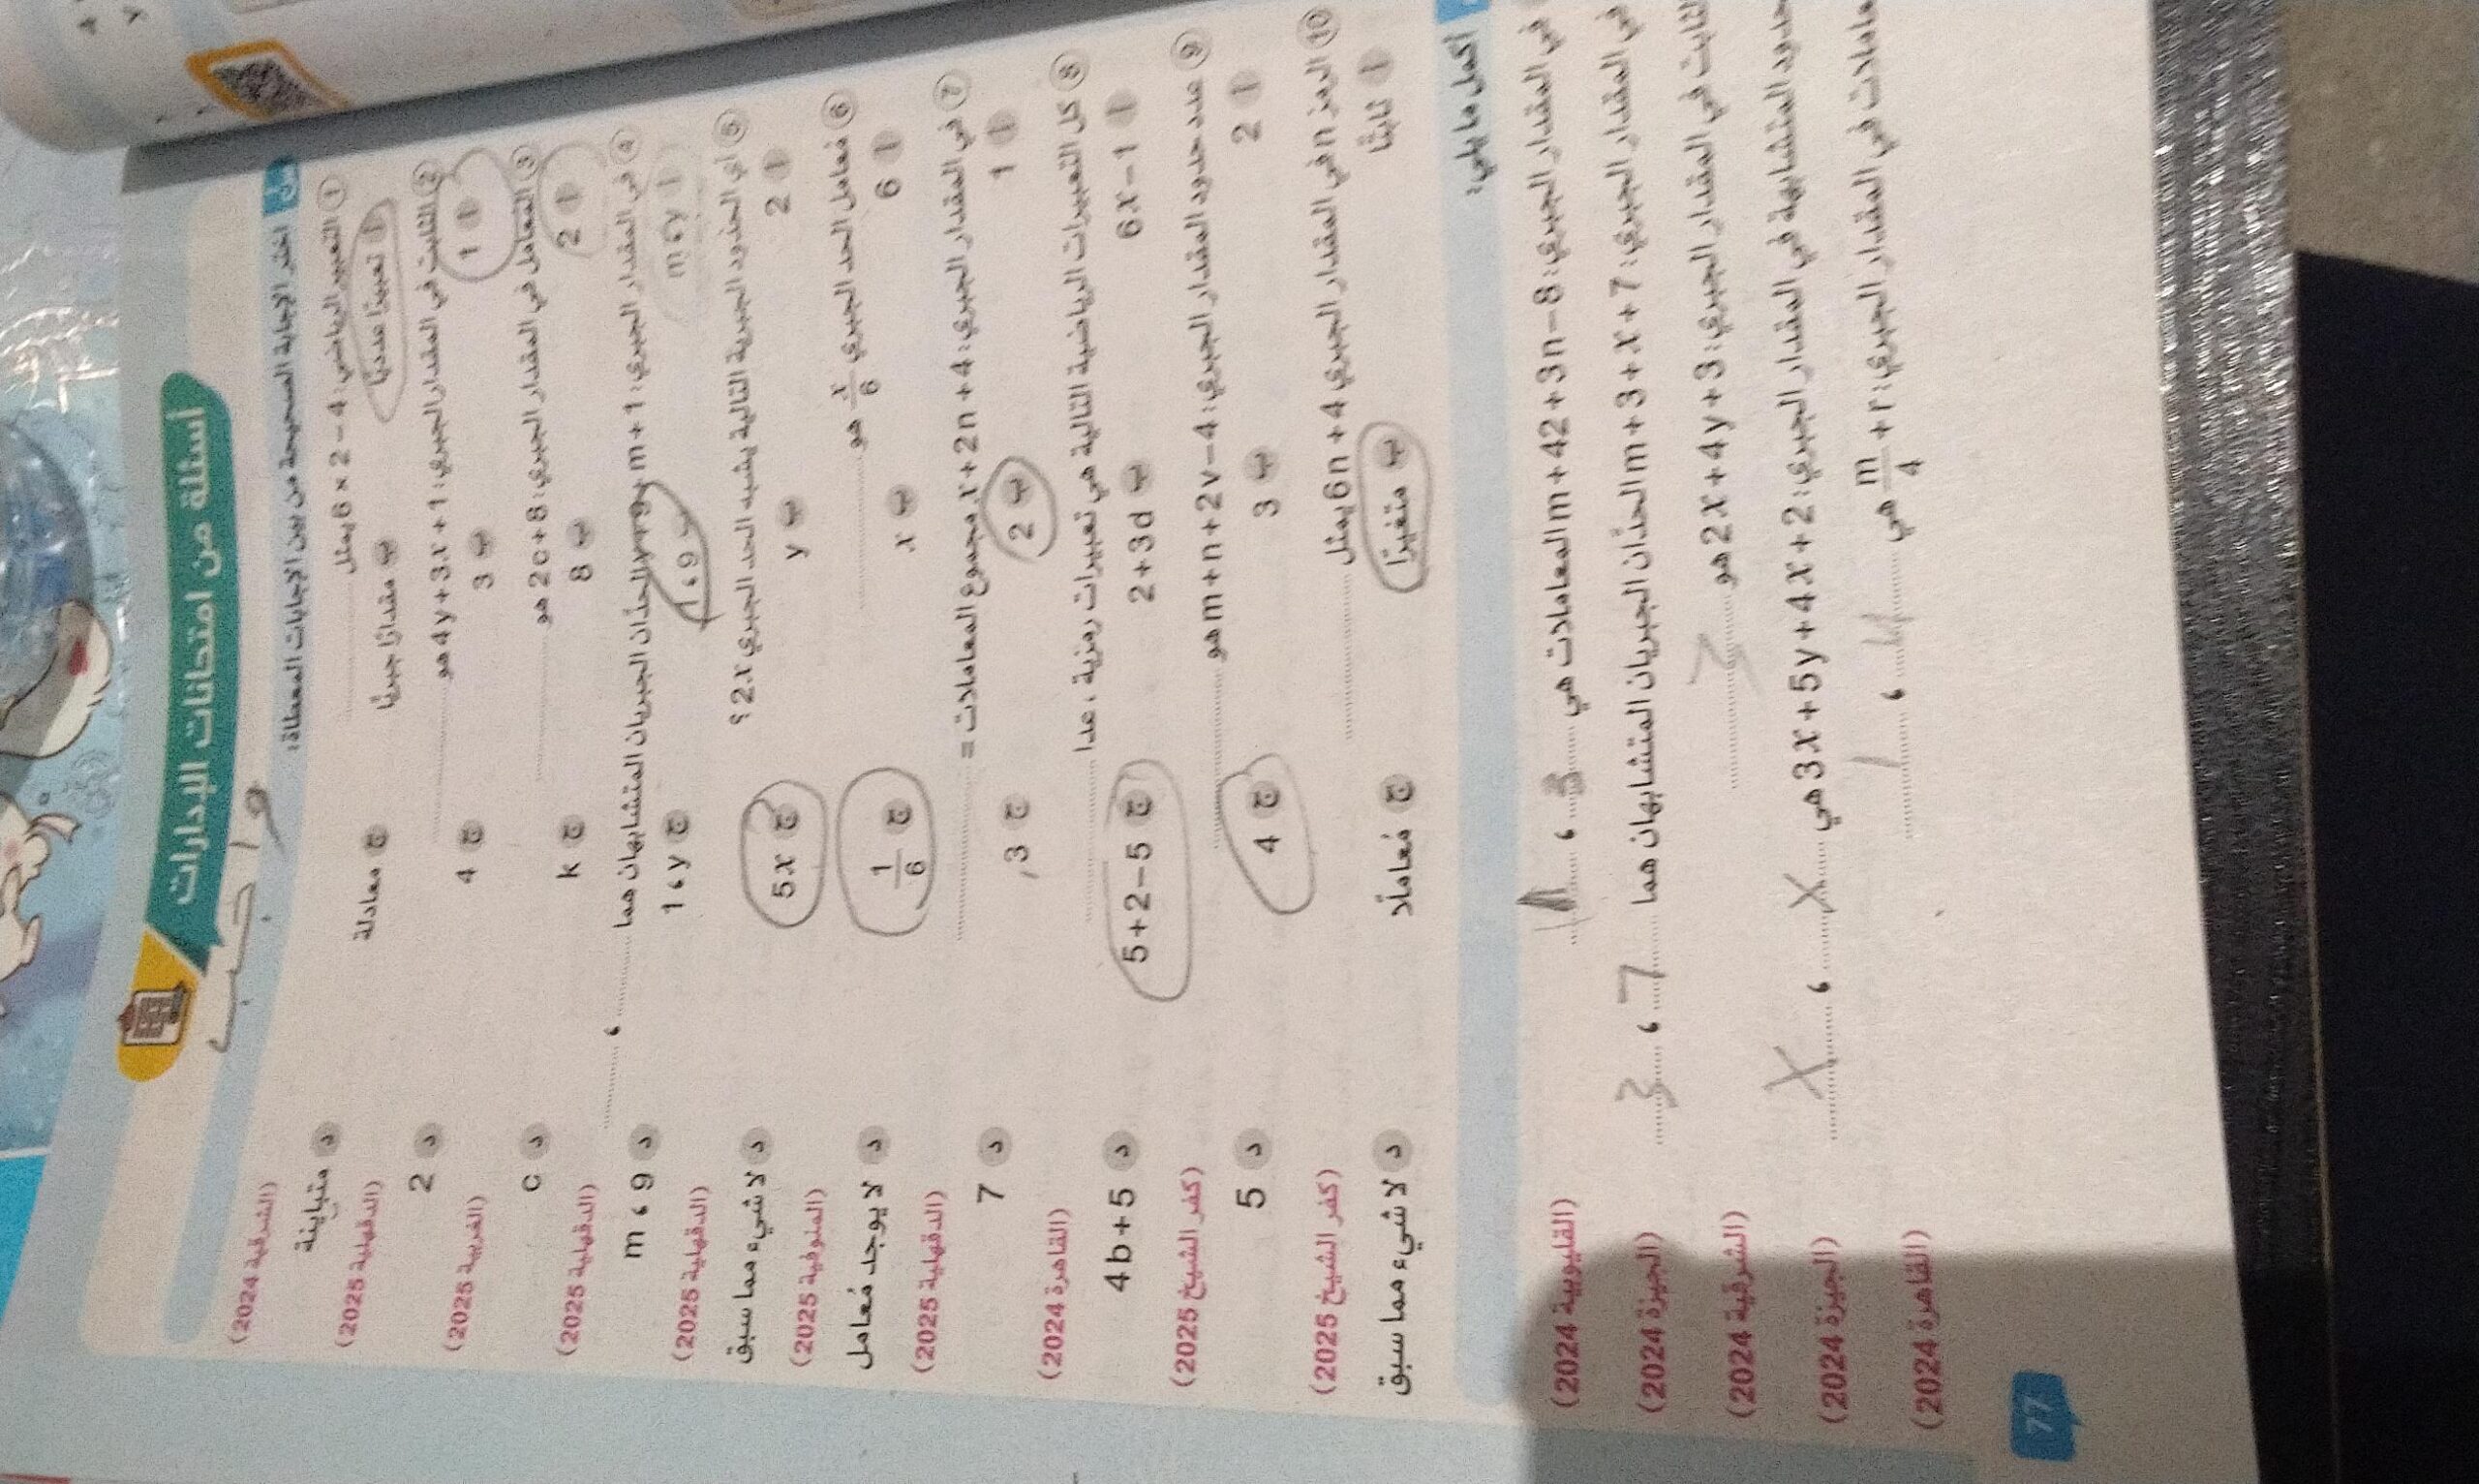 أسئلة من امتحانات الإدارات
واجب
اختر الإجابة الصحيحة من بين الإجابات المعطاة:
1 التعبير الرياضي: 4 − 2 × 6 يمثل (الشرقية 2024)
أ تعبيرًا عدديًا ب مقدارًا جبريًا ج معادلة د متباينة
2 الثابت في المقدار الجبري: 4y + 3x + 1 هو (الدقهلية 2025)
أ 1 ب 3 ج 4 د 2
3 المعامل في المقدار الجبري: 2c + 8 هو (الغربية 2025)
أ 2 ب 8 ج k د c
4 في المقدار الجبري: m + 1 الحدان الجبريان المتشابهان هما ، (الدقهلية 2025)
أ m ، y ب 9 ، 1 ج 1 ، y د m ، 9
5 أي الحدود الجبرية التالية يشبه الحد الجبري 2x؟ (الدقهلية 2025)
أ 2 ب y ج 5x د لا شيء مما سبق
6 مُعامل الحد الجبري x/6 هو (المنوفية 2025)
أ 6 ب x ج 1/6 د لا يوجد مُعامل
7 في المقدار الجبري: x + 2n + 4 مجموع المعاملات = (الدقهلية 2025)
أ 1 ب 2 ج 3 د 7
8 كل التعبيرات الرياضية التالية هي تعبيرات رمزية ، عدا (القاهرة 2024)
أ 6x − 1 ب 2 + 3d ج 5 + 2 − 5 د 4b + 5
9 عدد حدود المقدار الجبري: m + n + 2v − 4 هو (كفر الشيخ 2025)
أ 2 ب 3 ج 4 د 5
10 الرمز n في المقدار الجبري 6n + 4 يمثل (كفر الشيخ 2025)
أ ثابتًا ب متغيرًا ج مُعاملًا د لا شيء مما سبق
أكمل ما يلي:
في المقدار الجبري: m + 42 + 3n − 8 المعاملات هي 3 ، (القليوبية 2024)
في المقدار الجبري: m + 3 + x + 7 الحدّان الجبريان المتشابهان هما 7 ، 3 (الجيزة 2024)
الثابت في المقدار الجبري: 2x + 4y + 3 هو 3 (الشرقية 2024)
حدود المتشابهة في المقدار الجبري: 3x + 5y + 4x + 2 هي x ، x (الجيزة 2024)
معاملات في المقدار الجبري: m/4 + r هي ، 1 (القاهرة 2024)
77